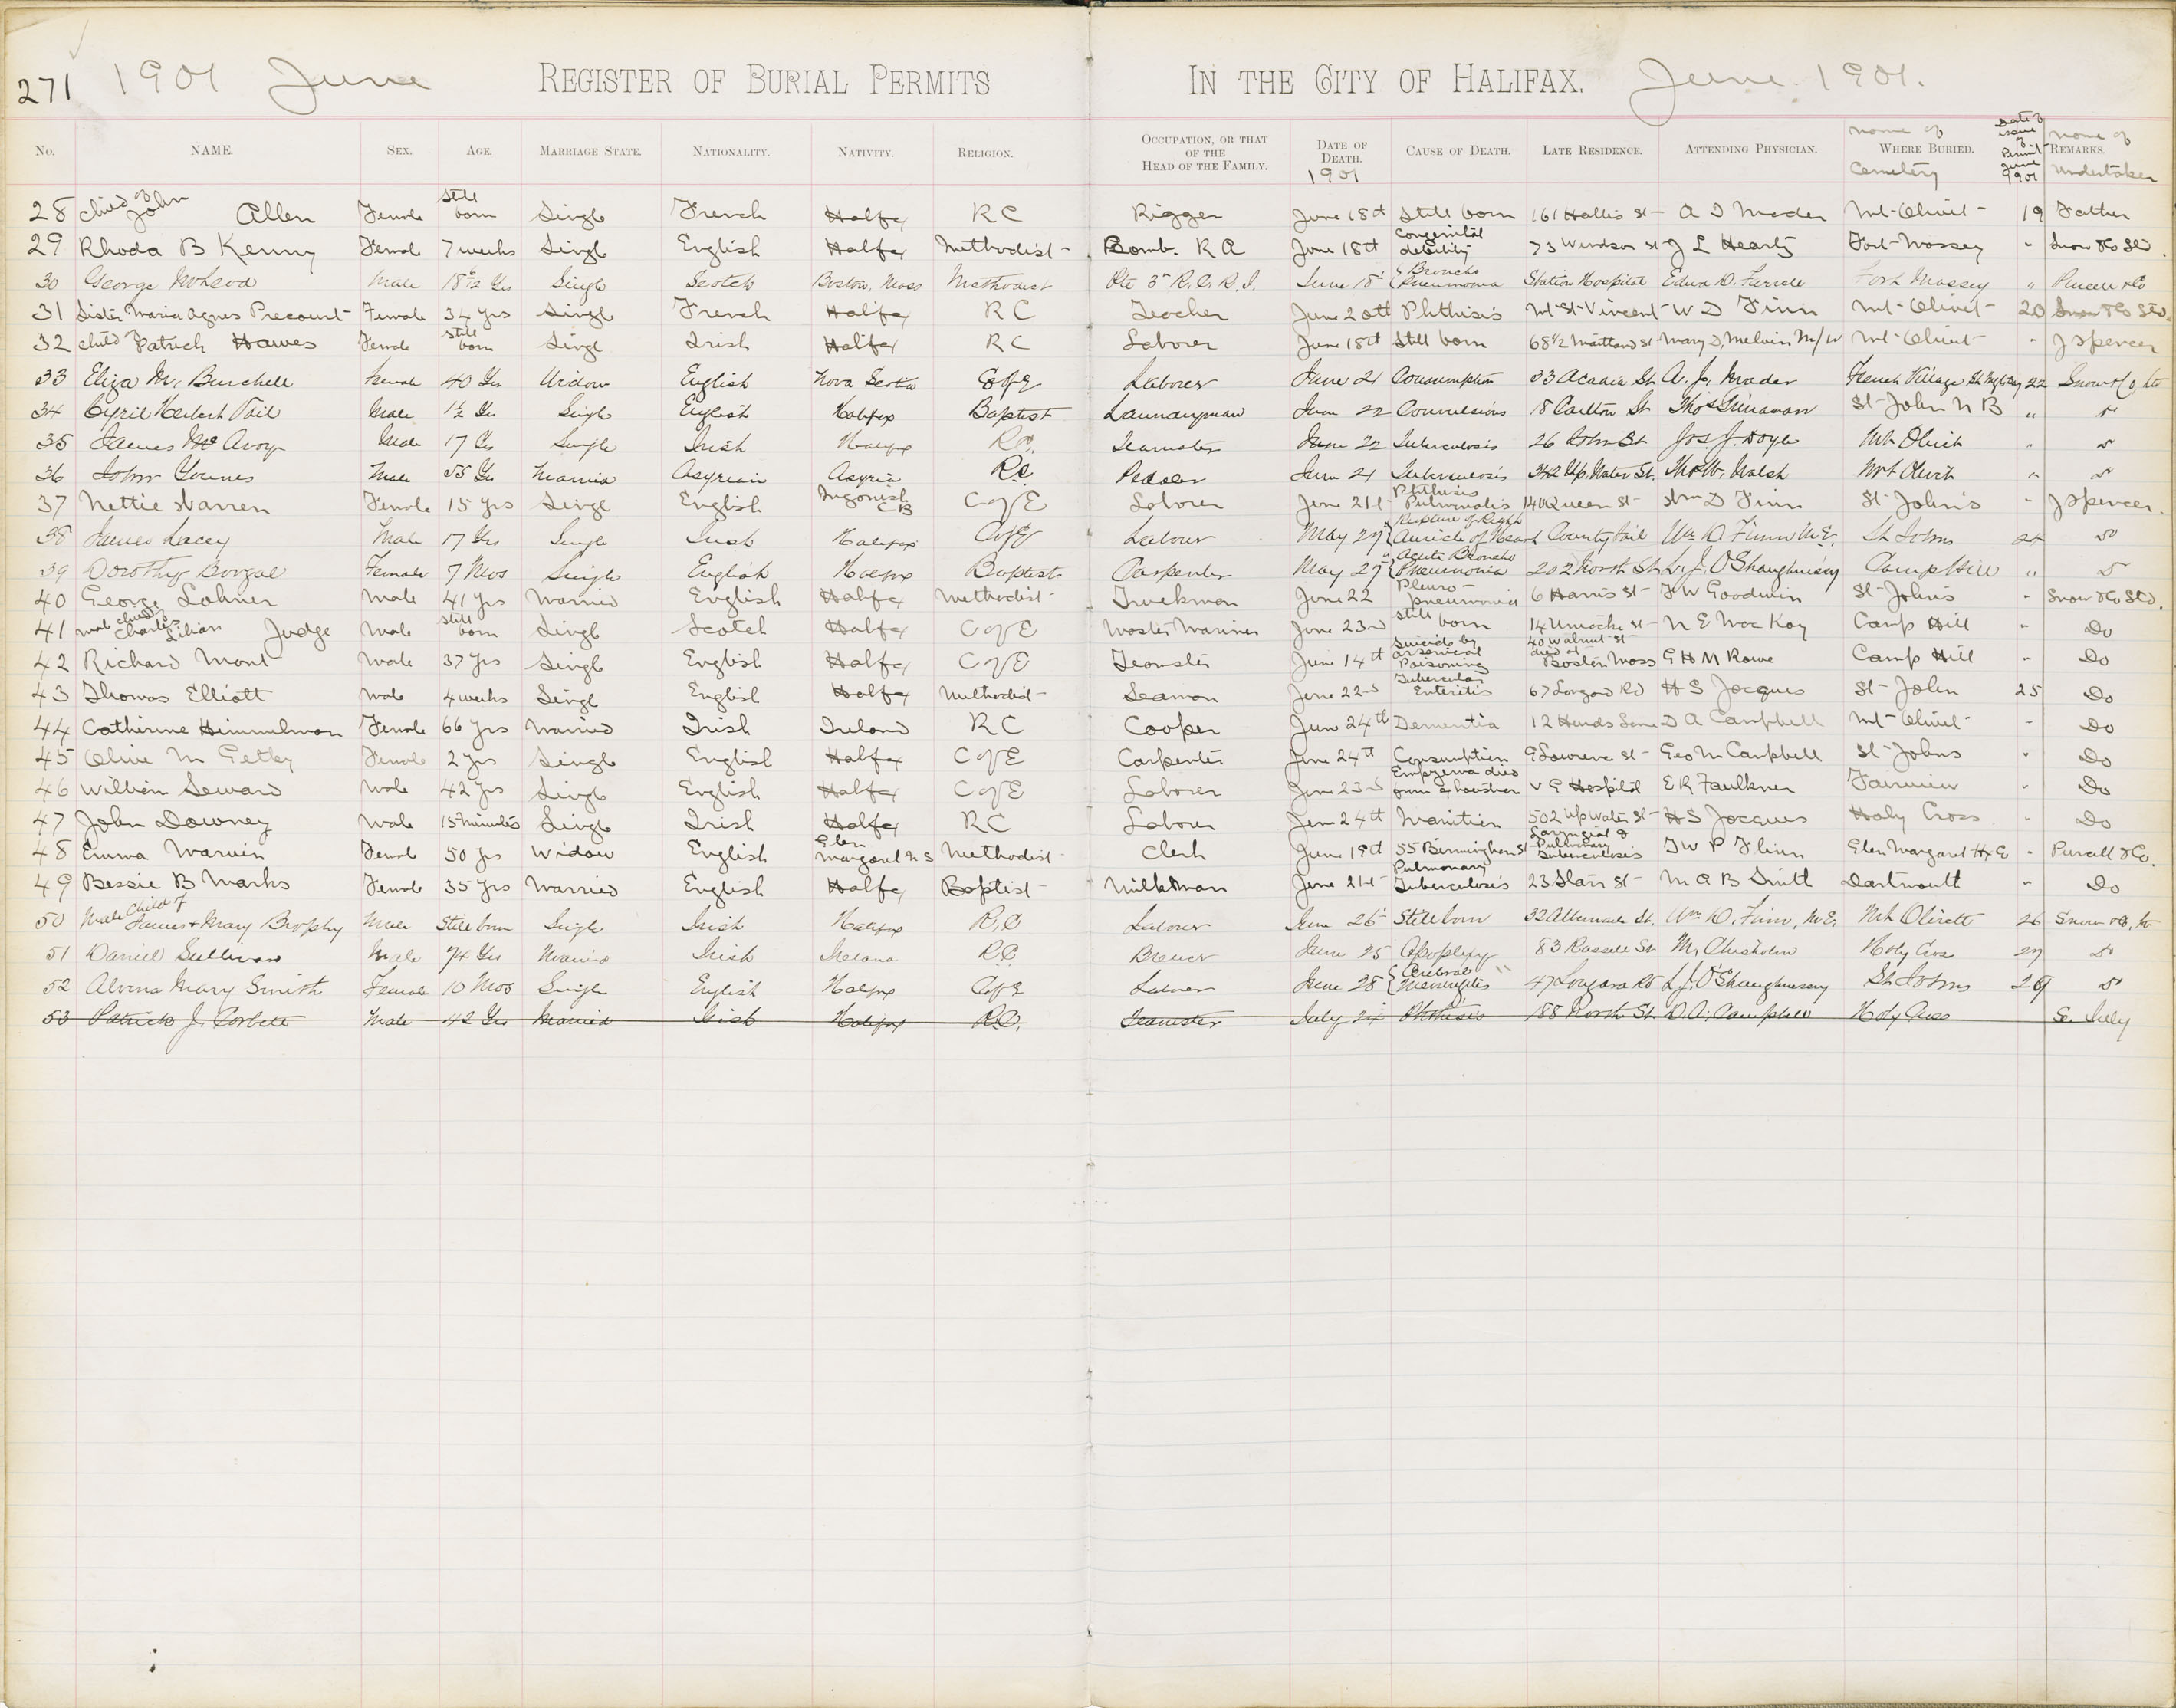 271 1901 June REGISTER OF BURIAL PERMITS IN THE CITY OF HALIFAX. June 1901.
No. NAME. SEX. AGE. MARRIAGE STATE. NATIONALITY. NATIVITY. RELIGION. OCCUPATION, OR THAT OF THE HEAD OF THE FAMILY. DATE OF DEATH. 1901 CAUSE OF DEATH. LATE RESIDENCE. ATTENDING PHYSICIAN. Name of WHERE BURIED. Cemetery Date of issue of Permit June 1901 Name of REMARKS. Undertaker
28 child of John Allen Female Still born Single French Halifax R C Rigger June 18th Still born 161 Hollis St A I Mader Mt Olivet 19 Father
29 Rhoda B Kenny Female 7 weeks Single English Halifax Methodist Bomb. R A June 18th Congenital debility 73 Windsor St J L Hearty Fort Massey " Snow & Co Ltd.
30 George McLeod Male 18 Yrs Single Scotch Boston, Mass Methodist Pte 3rd R.C.R.I. June 18 Broncho Pneumonia Station Hospital Fort Massey " Purcell & Co
31 Sister Maria Agnes Precourt Female 34 yrs Single French Halifax R C Teacher June 20th Phthisis Mt St Vincent W D Finn Mt Olivet 20 Snow & Co Ltd.
32 child Patrick Hawes Female Still born Single Irish Halifax R C Laborer June 18th Still born 68 1/2 Maitland St Mary D Melvin M/W Mt Olivet " J Spencer
33 Eliza M. Burchell Female 40 Yrs Widow English Nova Scotia C of E Laborer June 21 Consumption 33 Acadia St A. J. Mader French Village St Mgts Bay 22 Snow & Co, Ltd
34 Cyril Herbert Vail Male 1 1/2 Yrs Single English Halifax Baptist Laundryman June 22 Convulsions 18 Carlton St Thos Trinaman St John N B " Do
35 James McAvoy Male 17 Yrs Single Irish Halifax R.C. Teamster June 22 Tuberculosis 26 John St Jos J. Doyle Mt Olivet " Do
36 John Younes Male 55 Yrs Married Assyrian Asyria R.C. Pedler June 21 Tuberculosis 342 Up. Water St. Thos W. Walsh Mt Olivet " Do
37 Nettie Warren Female 15 yrs Single English Ingonish C B C of E Laborer June 21st Phthisis Pulmonalis 140 Queen St Wm D Finn St John's " J Spencer.
38 James Lacey Male 17 Yrs Single Irish Halifax C of E Labour May 27 Rupture of Right Auricle of Heart County Jail Wm D. Finn M.E. St Johns 24 Do
39 Dorothy Male Female 7 Mos Single English Halifax Baptist Carpenter May 27 Acute Broncho Pneumonia 202 North St L. J. O'Shaughnessy Camp Hill " Do
40 George Lohner Male 41 yrs Married English Halifax Methodist Truckman June 22 Pleuro-pneumonia 6 Harris St F W Goodwin St John's " Snow & Co Ltd.
41 male child of Charles Lilian Judge Male Still born Single Scotch Halifax C of E Master Mariner June 23rd Still born 14 Uniacke St N E MacKay Camp Hill " Do
42 Richard Mont Male 37 yrs Single English Halifax C of E Teamster June 14th Suicide by arsenical Poisoning 40 Walnut St died at Boston Mass G H M Rowe Camp Hill " Do
43 Thomas Elliott Male 4 weeks Single English Halifax Methodist Seaman June 22nd Tubercular Enteritis 67 Longard Rd H S Jacques St John 25 Do
44 Catherine Himmelman Female 66 yrs Married Irish Ireland R C Cooper June 24th Dementia 12 Hurds Lane D A Campbell Mt Olivet " Do
45 Olive M Female 2 yrs Single English Halifax C of E Carpenter June 24th Consumption 9 Lawrence St Geo M Campbell St Johns " Do
46 William Seward Male 42 yrs Single English Halifax C of E Laborer June 23rd Empyema died from exhaustion V G Hospital E R Faulkner Fairview " Do
47 John Downey Male 15 minutes Single Irish Halifax R C Laborer June 24th Inanition 502 Up Water St H S Jacques Holy Cross " Do
48 Emma Warvin Female 50 yrs Widow English Glen Margaret N S Methodist Clerk June 19th 55 Birmingham St Laryngial & Pulmonary Tuberculosis T W P Flinn Glen Margaret Hx Co " Purcell & Co.
49 Bessie B Marks Female 35 yrs Married English Halifax Baptist Milkman June 21st Pulmonary Tuberculosis 23 Starr St M A B Smith Dartmouth " Do
50 Male Child of James & Mary Brophy Male Still born Single Irish Halifax R.C Labour June 26 Still born 32 Albemarle St. Wm D. Finn, M.E. Mt Olivett 26 Snow & Co, Ltd
51 Daniel Sullivan Male 74 Yrs Married Irish Ireland R.C. Brewer June 25 Apoplexy 83 Russell St M. Chisholm Holy Cross 27 Do
52 Alvina Mary Smith Female 10 Mos Single English Halifax C of E Labour June 28 Cerebral Meningitis 47 Longard Rd L. J. O'Shaughnessy St Johns 29 Do
53 Patrick J. Corbett Male 42 Yrs Married Irish Halifax R.C. Teamster July Phthisis 188 North St D. A. Campbell Holy Cross See July